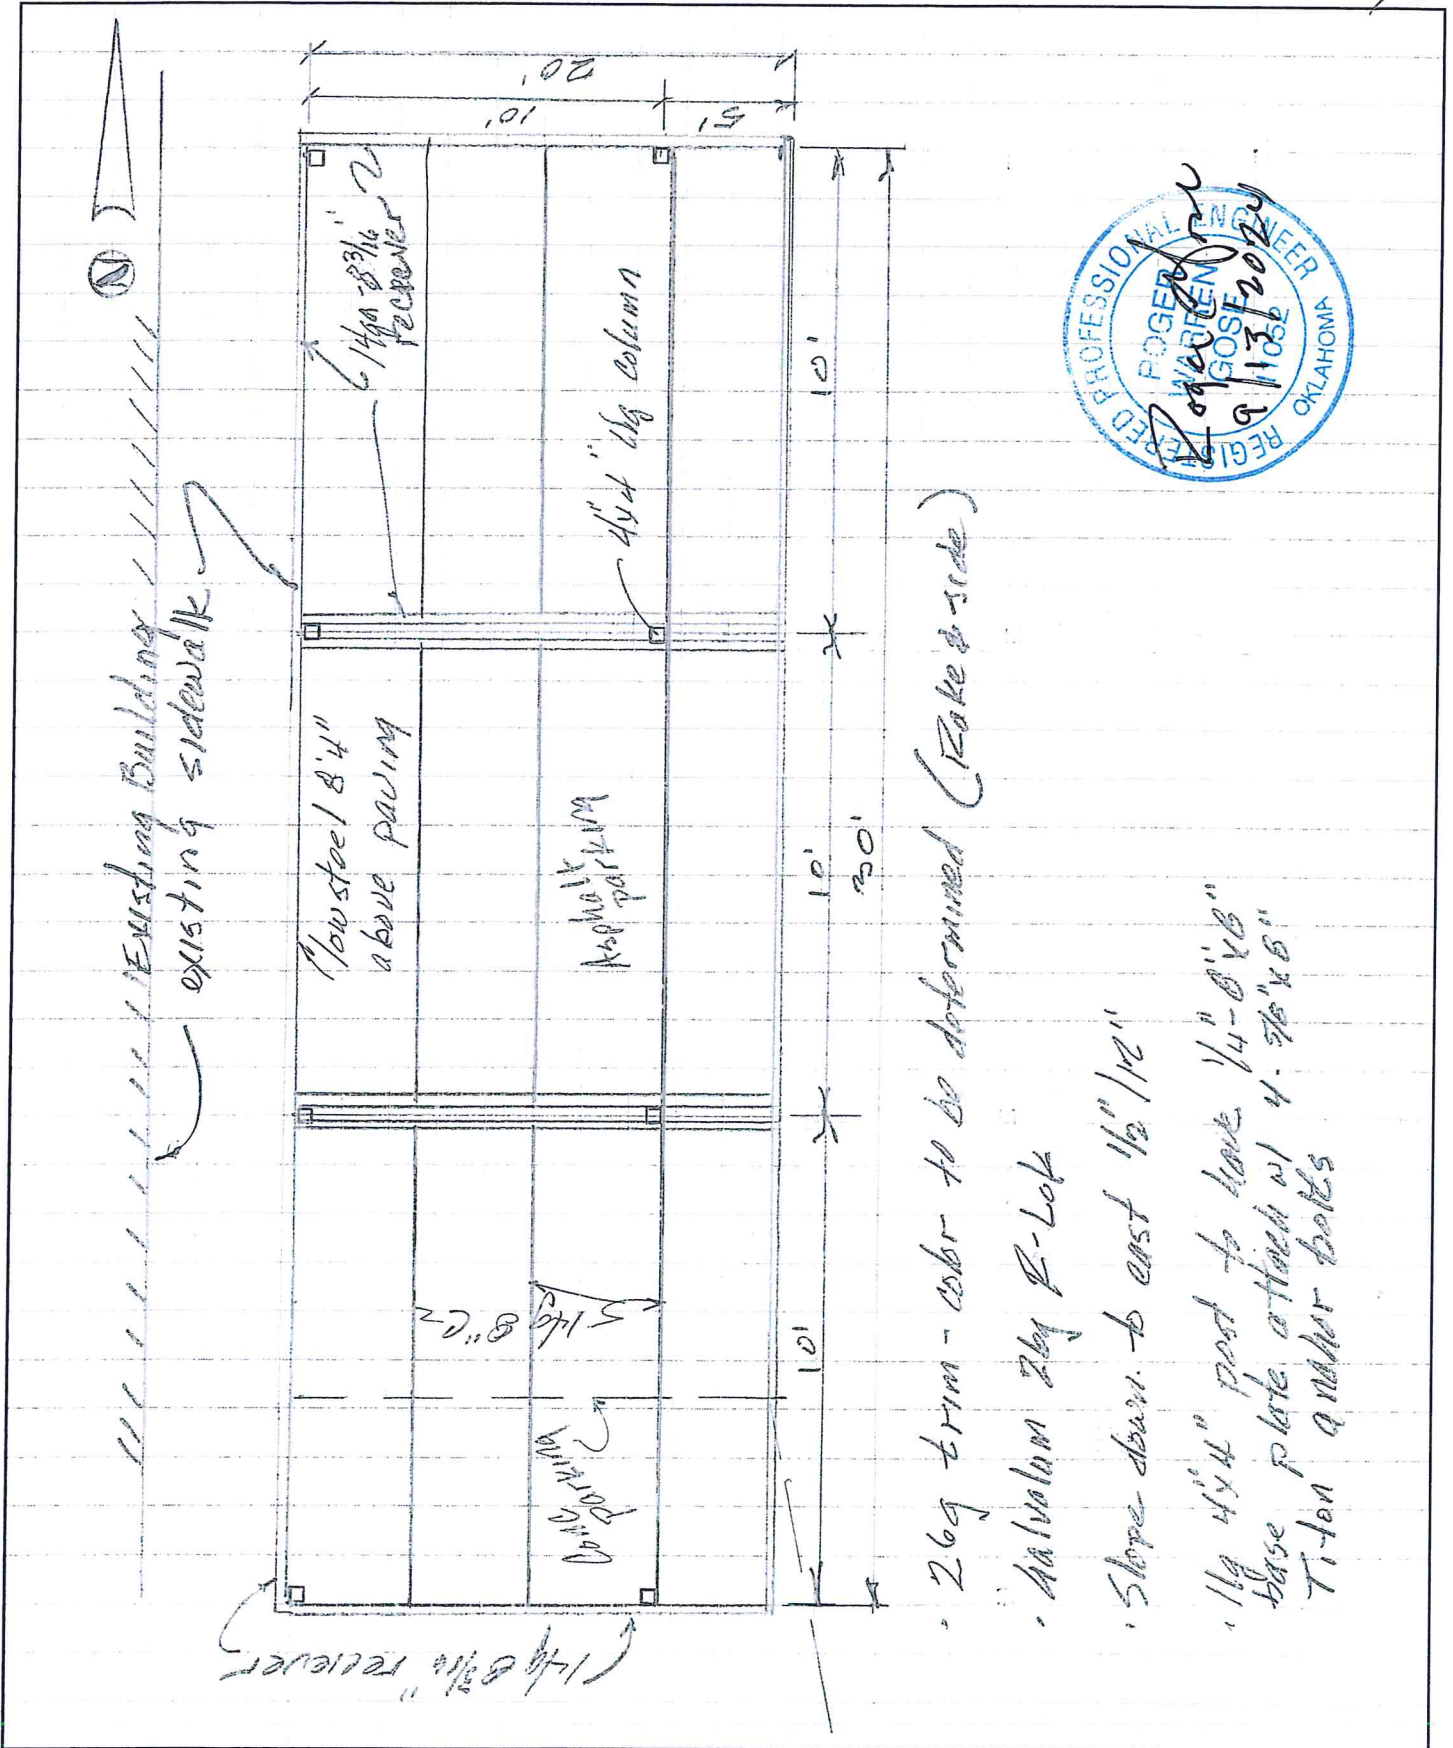 Existing Building
existing sidewalk
N
20'
10'
5'
14ga 8 3/16"
receever
4"x4" 11g column
lowsteel 8'4"
above paving
Asphalt
parking
14g
8" Cs
Conc
parking
14g 8 3/16" reciever
10'
10'
10'
30'
· 26g trim - color to be determined (Rake & side)
· Galvalum 26g R-Lok
· Slope down to east 1/2"/12"
· 11g 4"x4" post to have 1/4"-8"x8"
base plate attach w/ 4-5/8"x8"
Titan anchor bolts
REGISTERED PROFESSIONAL ENGINEER
ROGER
WARREN
GOSE
11052
OKLAHOMA
9/13/2024